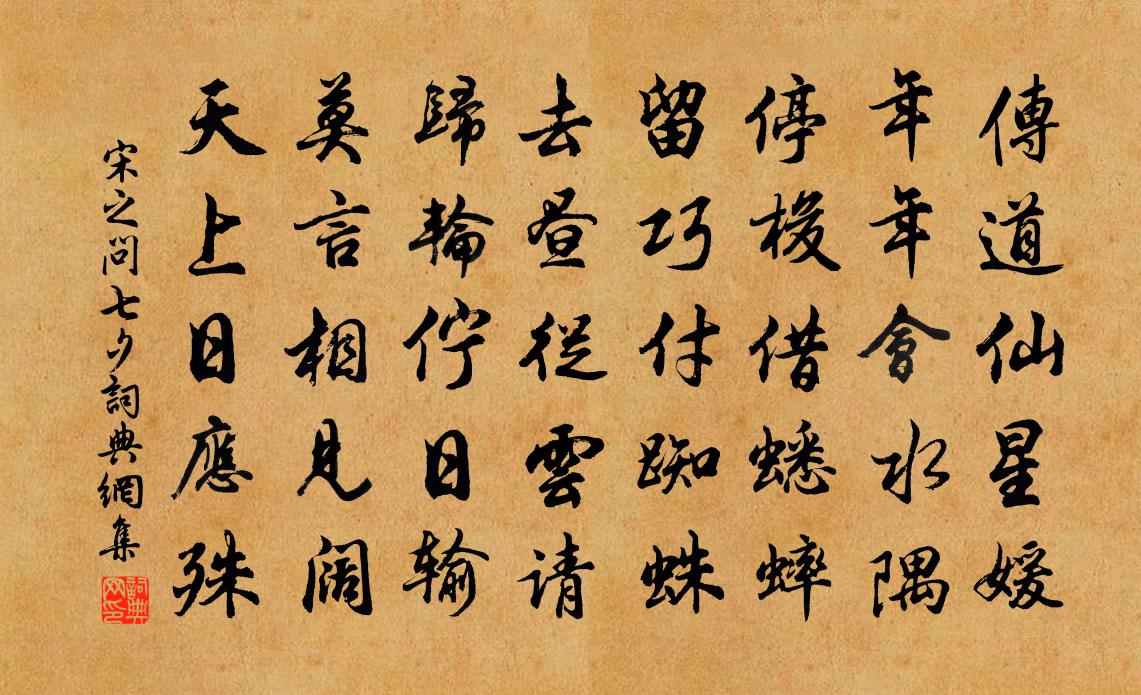 傳道仙星媛
年年會水隅
停梭借蟋蟀
留巧付踟蛛
去昼從雲请
歸輪佇日輸
莫言相見闊
天上日應殊
宋之问七夕詞典網集
詞典网印